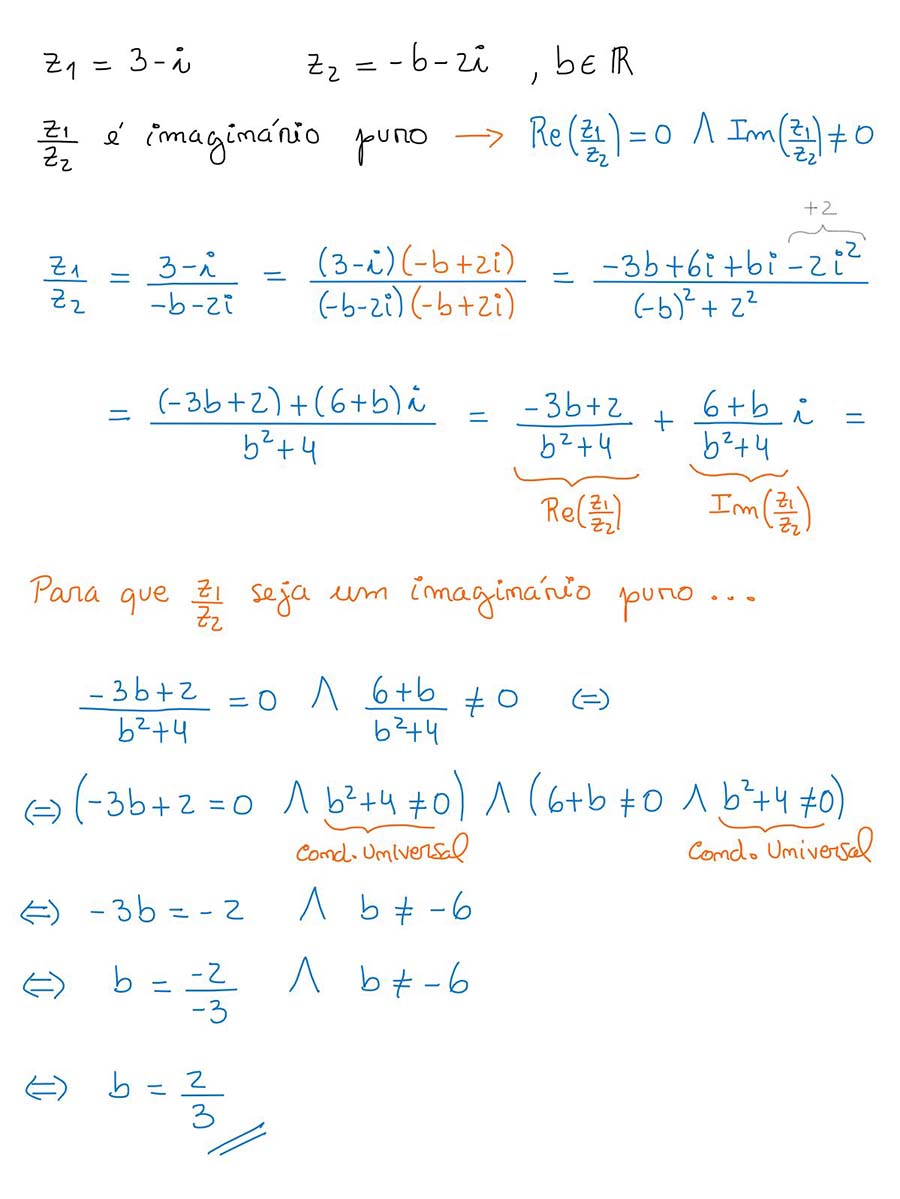 z₁ = 3-i z₂ = -b-2i , b∈ℝ
z₁/z₂ é imaginário puro → Re(z₁/z₂) = 0 ∧ Im(z₁/z₂) ≠ 0
+2
z₁/z₂ = (3-i)/(-b-2i) = ((3-i)(-b+2i))/((-b-2i)(-b+2i)) = (-3b+6i+bi-2i²)/((-b)²+2²)
= ((-3b+2)+(6+b)i)/(b²+4) = (-3b+2)/(b²+4) + (6+b)/(b²+4) i =
Re(z₁/z₂) Im(z₁/z₂)
Para que z₁/z₂ seja um imaginário puro...
(-3b+2)/(b²+4) = 0 ∧ (6+b)/(b²+4) ≠ 0 ⇔
⇔ (-3b+2=0 ∧ b²+4≠0) ∧ (6+b≠0 ∧ b²+4≠0)
Cond. Universal Cond. Universal
⇔ -3b = -2 ∧ b ≠ -6
⇔ b = -2/-3 ∧ b ≠ -6
⇔ b = 2/3